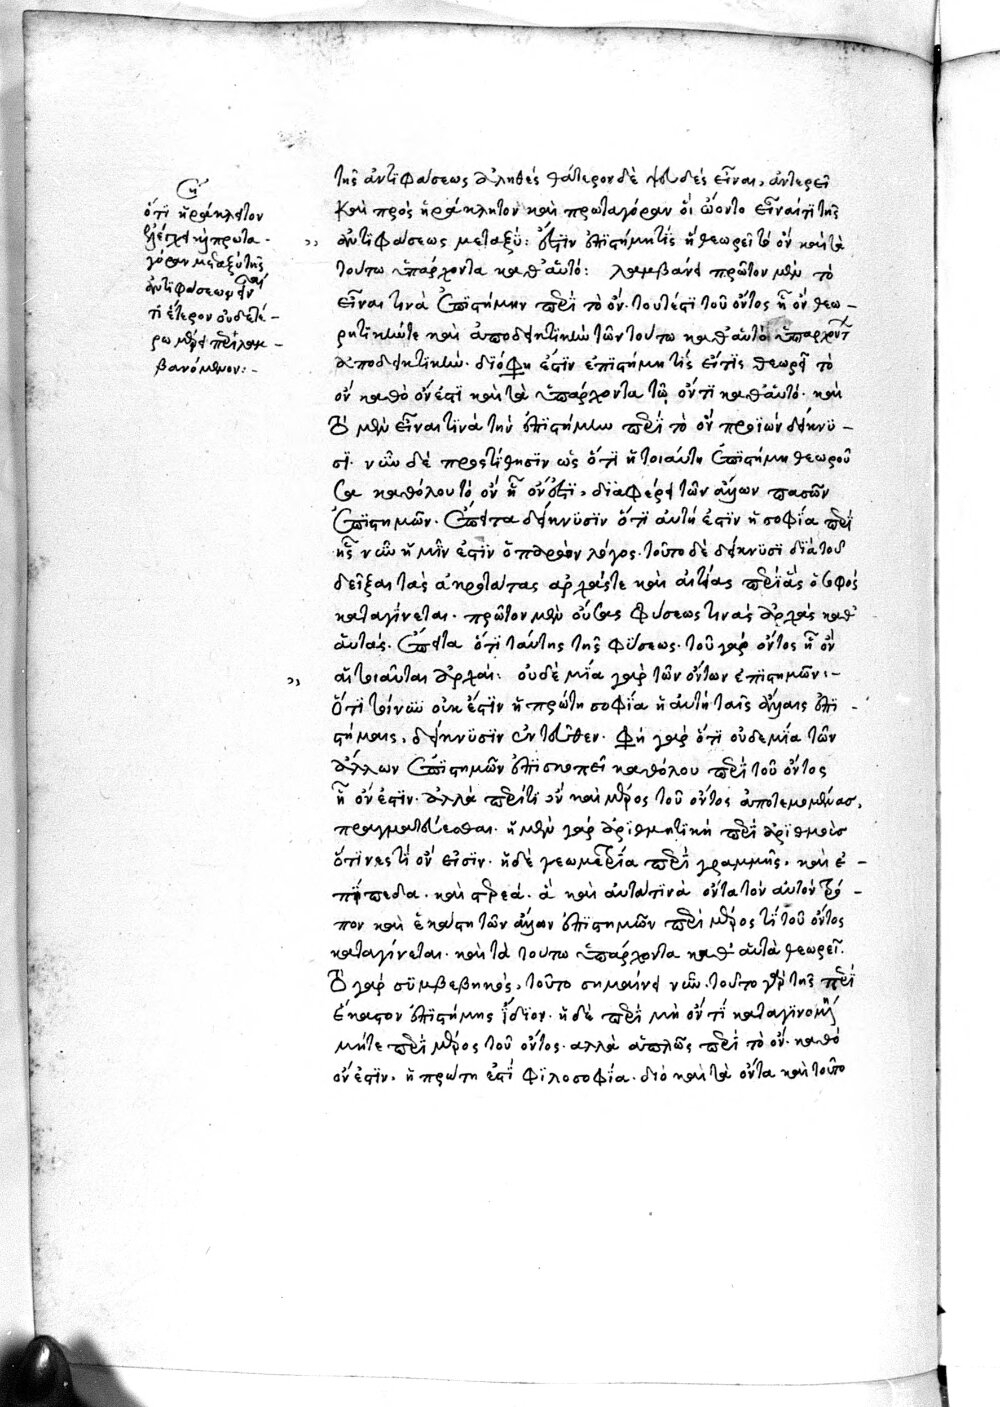 ση
ὅτι ἡράκλειτον
ἐλέγχει καὶ πρωτα-
γόραν μεταξὺ τῆς
ἀντιφάσεως εἶναί
τι ἕτερον οὐδετέ-
ρω μέρει περιλαμ-
βανόμενον:-
τῆς ἀντιφάσεως ἀληθὲς θάτερον δὲ ψευδὲς εἶναι, ἀντερεῖ
καὶ πρὸς ἡράκλητον καὶ πρωταγόραν οἳ ᾤοντο εἶναί τι τῆς
ἀντιφάσεως μεταξύ: ἔστιν ἐπιστήμη τὶς ἣ θεωρεῖ τὸ ὂν καὶ τὰ
τούτω ὑπάρχοντα καθ' αὑτό: λαμβάνει πρῶτον μὲν τὸ
εἶναι τινὰ ἐπιστήμην περὶ τὸ ὄν. τουτέστι τοῦ ὄντος ἧ ὂν θεω-
ρητικήν τε καὶ ἀποδεικτικὴν τῶν τούτω καθ' αὑτὸ ὑπαρχόντ
ἀποδεικτικήν. διό φη ἔστιν ἐπιστήμη τίς εἴτις θεωρεῖ τὸ
ὂν καθὸ ὄν ἐστι καὶ τὰ ὑπάρχοντα τῶ ὄντι καθ' αὑτό. καὶ
τὸ μὲν εἶναι τινὰ τὴν ἐπιστήμην περὶ τὸ ὂν προϊὼν δείκνυ-
σι. νῦν δὲ προστίθησιν ὡς ὅτι ἡ τοιαύτη ἐπιστήμη θεωροῦ
σα καθόλου τὸ ὂν ἧ ὄν ἐστι, διαφέρει τῶν ἄλλων πασῶν
ἐπιστημῶν. ἔπειτα δείκνυσιν ὅτι αὐτή ἐστιν ἡ σοφία περὶ
ἧς νῦν ἡμῖν ἐστιν ὁ παρὼν λόγος. τοῦτο δὲ δείκνυσι διὰ τοῦ
δεῖξαι τὰς ἀκροτάτας ἀρχάς τε καὶ αἰτίας περὶ ἃς ὁ σοφὸς
καταγίνεται. πρῶτον μὲν οὔσας φύσεως τινὰς ἀρχὰς καθ'
αὑτάς. ἔπειτα ὅτι ταύτης τῆς φύσεως. τοῦ γὰρ ὄντος ἧ ὂν
αἱ τοιαῦται ἀρχαί: οὐδεμία γὰρ τῶν ὄντων ἐπιστημῶν:-
ὅτι τοίνυν οὐκ ἔστιν ἡ πρώτη σοφία ἡ αὐτὴ ταῖς ἄλλαις ἐπι-
στήμαις, δείκνυσιν ἐντεῦθεν. φη γὰρ ὅτι οὐδεμία τῶν
ἄλλων ἐπιστημῶν ἐπισκοπεῖ καθόλου περὶ τοῦ ὄντος
ἧ ὄν ἐστιν. ἀλλὰ περί τι ὂν καὶ μέρος τοῦ ὄντος ἀποτεμομένας,
πραγματεύεσθαι. ἡ μὲν γὰρ ἀριθμητικὴ περὶ ἀριθμοὺς
οἵτινες τὶ ὄν εἰσιν. ἡ δὲ γεωμετρία περὶ γραμμῆς, καὶ ἐ-
πίπεδα. καὶ στερεά. ἃ καὶ αὐτὰ τινὰ ὄντα τὸν αὐτὸν τρό-
πον καὶ ἑκάστη τῶν ἄλλων ἐπιστημῶν περὶ μέρος τὶ τοῦ ὄντος
καταγίνεται. καὶ τὰ τούτω ὑπάρχοντα καθ' αὑτὰ θεωρεῖ.
τὸ γὰρ συμβεβηκὸς, τοῦτο σημαίνει νῦν. τοῦτο γὰρ τῆς περὶ
ἕκαστον ἐπιστήμης ἴδιον. ἡ δὲ περὶ μὴ ὄν τι καταγινομένη
μήτε περὶ μέρος τοῦ ὄντος. ἀλλὰ ἁπλῶς περὶ τὸ ὄν. καθὸ
ὄν ἐστιν, ἡ πρώτη ἐστὶ φιλοσοφία. διὸ κατὰ ὄντα καὶ τοῦτο